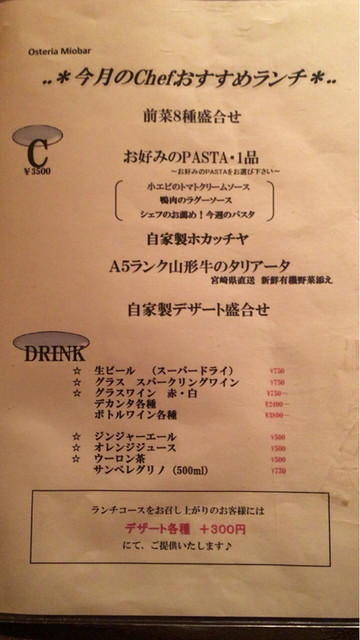 Osteria Miobar
..＊今月のChefおすすめランチ＊..
前菜8種盛合せ
C
¥3500
お好みのPASTA・1品
～お好みのPASTAをお選び下さい～
小エビのトマトクリームソース
鴨肉のラグーソース
シェフのお薦め！今週のパスタ
自家製ホカッチヤ
A5ランク山形牛のタリアータ
宮崎県直送 新鮮有機野菜添え
自家製デザート盛合せ
DRINK
☆ 生ビール （スーパードライ） ¥750
☆ グラス スパークリングワイン ¥750
☆ グラスワイン 赤・白 ¥750～
デカンタ各種 ¥2400～
ボトルワイン各種 ¥3800～
☆ ジンジャーエール ¥500
☆ オレンジジュース ¥500
☆ ウーロン茶 ¥500
サンペレグリノ（500ml） ¥750
ランチコースをお召し上がりのお客様には
デザート各種 ＋300円
にて、ご提供いたします♪